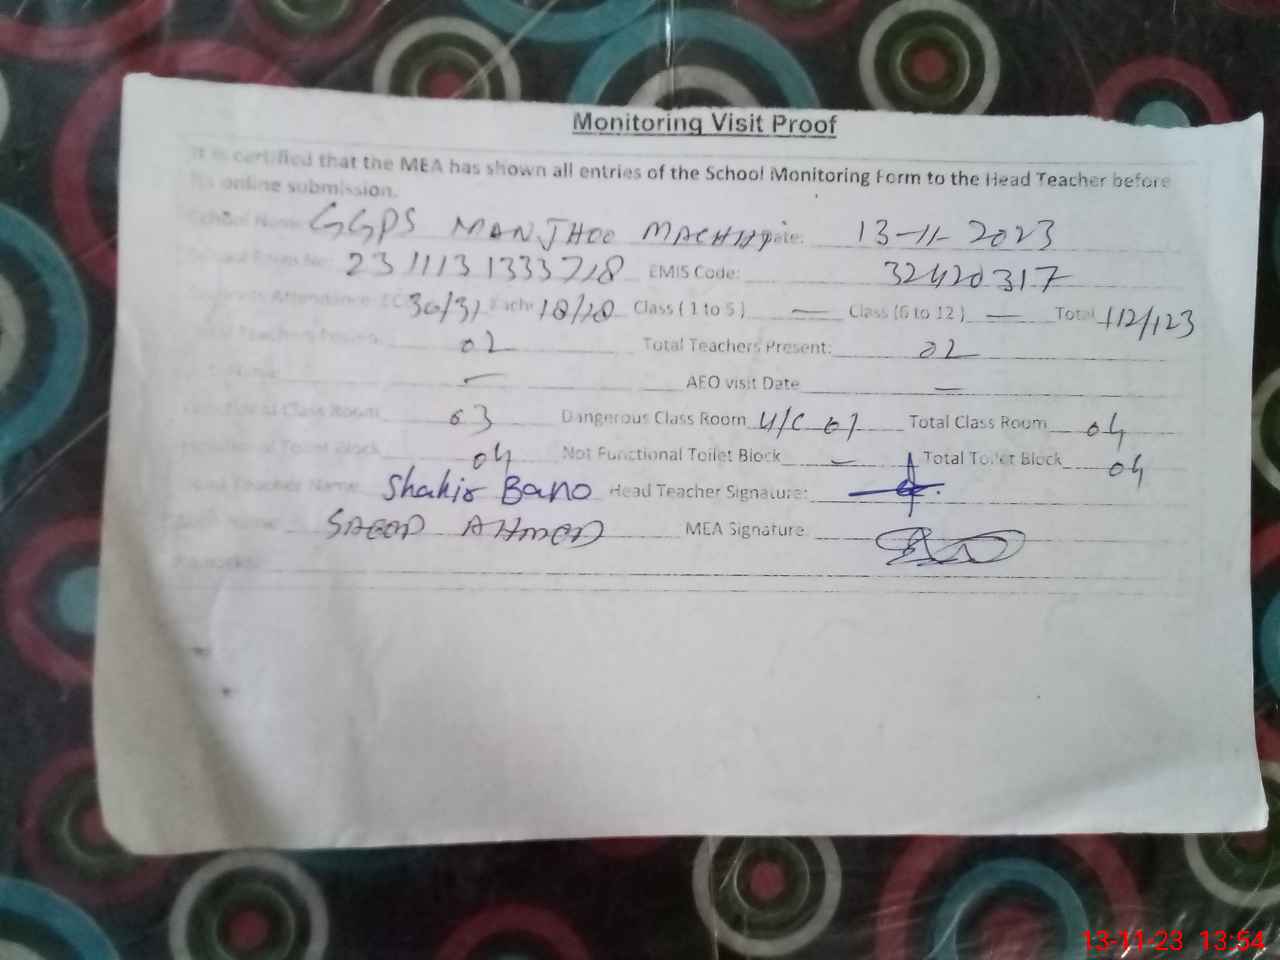 Monitoring Visit Proof
It is certified that the MEA has shown all entries of the School Monitoring Form to the Head Teacher before
its online submission.
School Name GGPS MANJHOO MACHHI Date: 13-11-2023
2311131333718 EMIS Code: 32420317
Students Attendance: EC 30/31 Kachi 18/18 Class ( 1 to 5 ) — Class (6 to 12 ) — Total 112/123
Total Teachers 02 Total Teachers Present: 02
— AEO visit Date —
Functional Class Room 03 Dangerous Class Room U/C 01 Total Class Room 04
Functional Toilet Block 04 Not Functional Toilet Block — Total Toilet Block 04
Head Teacher Name Shahir Bano Head Teacher Signature:
Name SAEED AHMED MEA Signature
Remarks
13-11-23 13:54